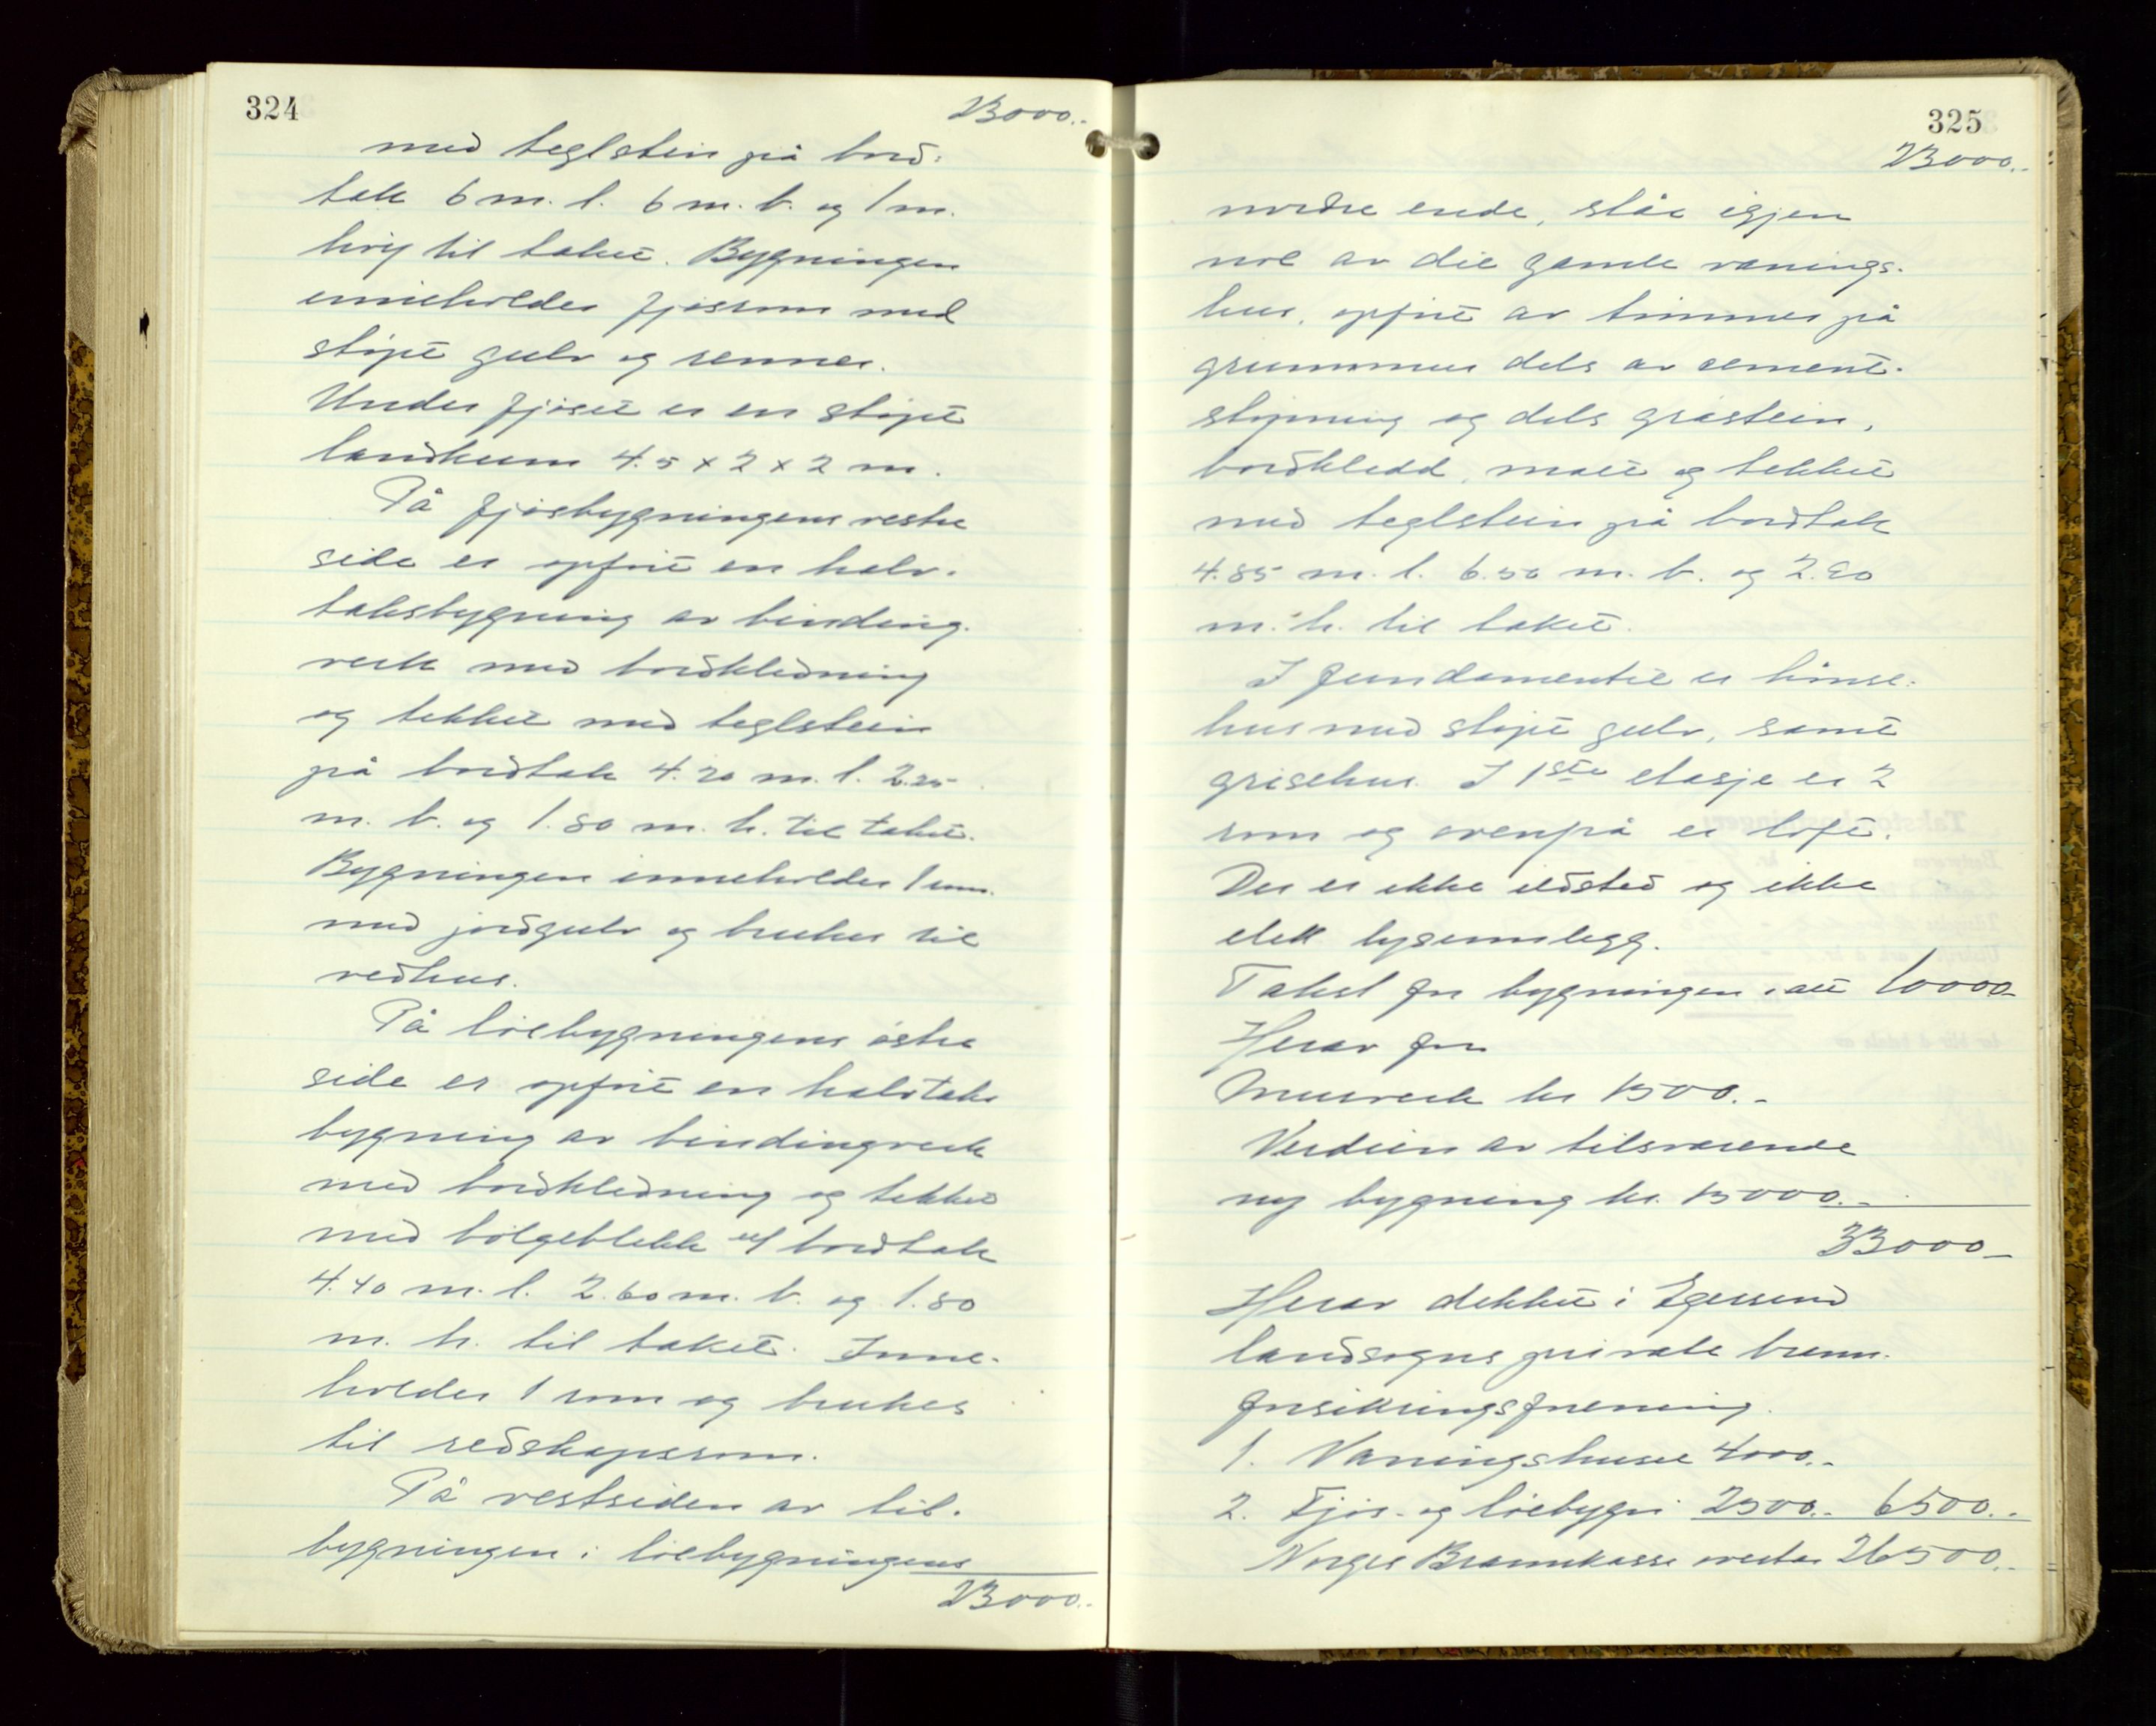 324
23000.-
med teglstein på bord-
tak 6 m. l. 6 m. b. og 1 m.
høy til taket. Bygningen
inneholder fjøsrom med
støpt gulv og renner.
Under fjøset er en støpt
landkum 4.5 x 2 x 2 m.
På fjøsbygningens vestre
side er opført en halv-
taksbygning av binding-
verk med bordkledning
og tekket med teglstein
på bordtak 4.20 m. l. 2.25
m. b. og 1.80 m. h. til taket.
Bygningen inneholder 1 rom
med jordgulv og brukes til
vedhus.
På løebygningens østre
side er opført en halvtaks
bygning av bindingverk
med bordkledning og tekket
med bølgeblekk ut/ bordtak
4.40 m. l. 2.60 m. b. og 1.80
m. h. til taket. Inne-
holder 1 rom og brukes
til redskapsrom.
På vestsiden av til-
bygningen i løebygningens
23000.-
325
23000.-
nordre ende, står igjen
noe av det gamle vånings-
hus, opført av tømmer på
grunnmur dels av cement-
støpning og dels gråstein,
bordkledd, malt og tekket
med teglstein på bordtak
4.85 m. l. 6.50 m. b. og 2.80
m. h. til taket.
I fundamentet er hønse-
hus med støpt gulv, samt
grisehus. I 1ste etasje er 2
rom og ovenpå er loft.
Der er ikke ildsted og ikke
elek lysinnlegg.
Takst for bygningen i alt 10000-
Herav for
Murverk kr 1500.-
Verdien av tilsvarende
ny bygning kr. 15000.-
33000-
Herav dekket i Egersund
landsogns private brann-
forsikringsforening.
1. Våningshuset 4000.-
2. Fjøs- og løebygn 2500.- 6500.-
Norges Brannkasse overtar 26500.-